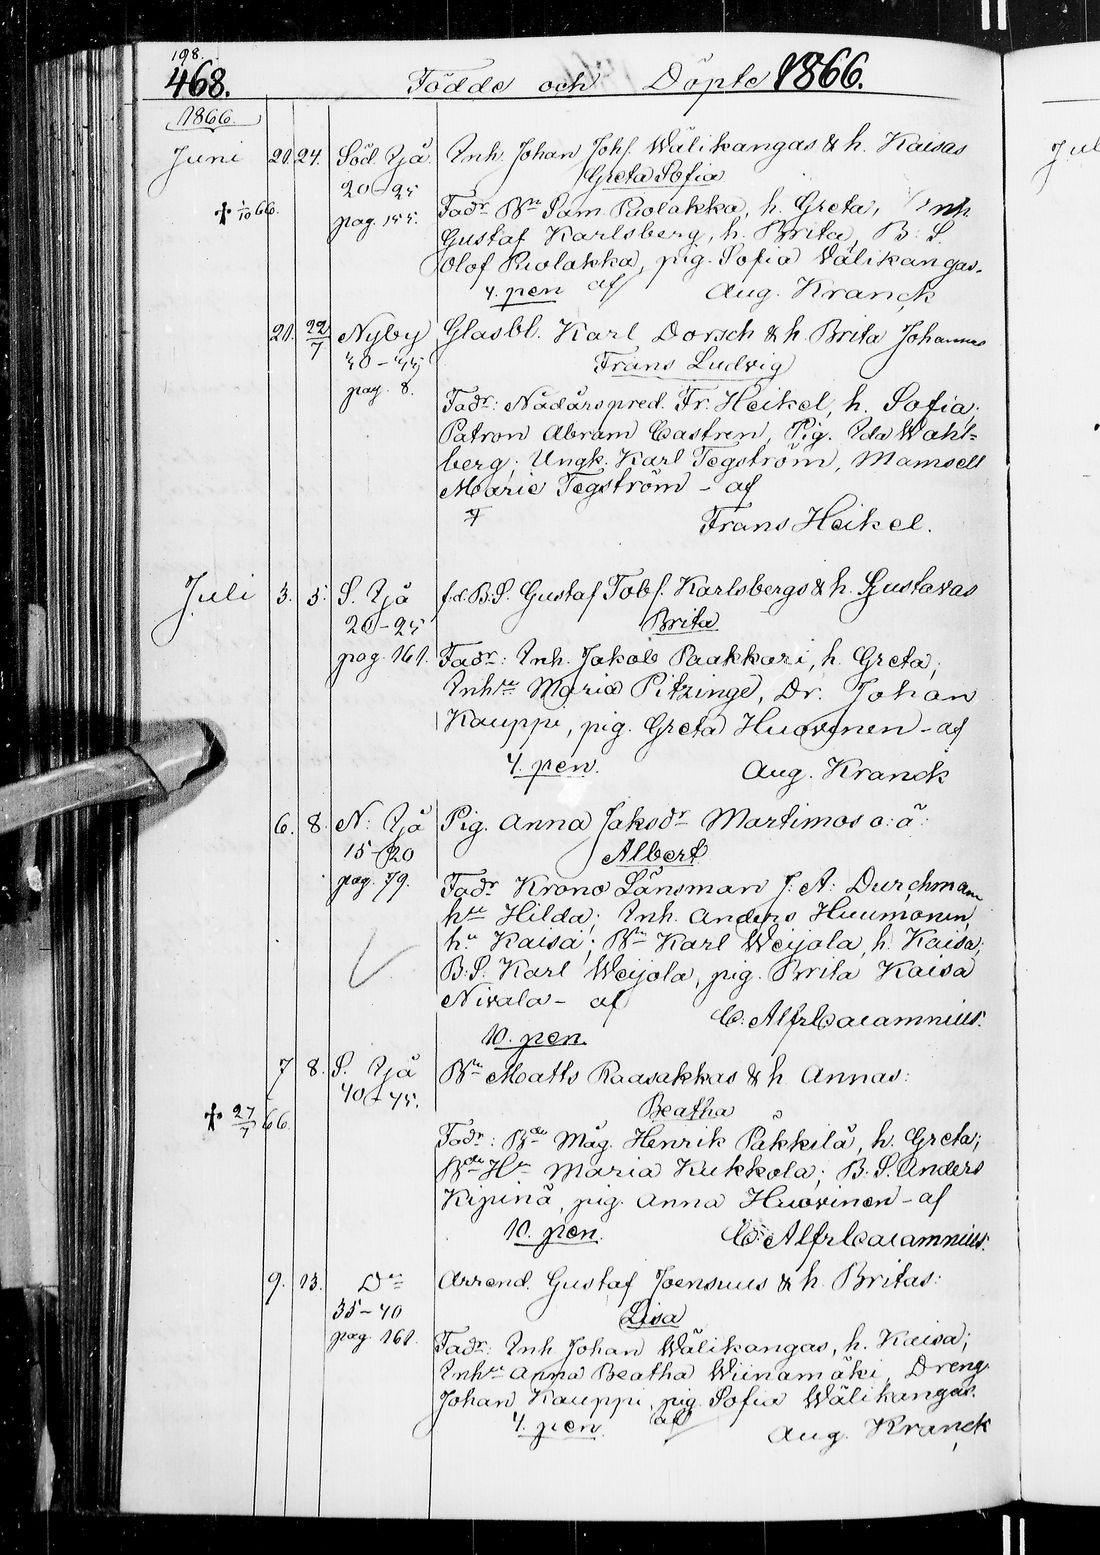 198.
468. Födde och Döpte 1866.
1866.
Juni 21. 24. Söd. Ijå Inh. Johan Johs. Wälikangas & h. Kaisas
20-25 Greta Sofia
+ 1/10 66. pag. 155. Fadr Bn Sam. Ruolakka, h. Greta, Inh
Gustaf Karlsberg, h. Brita, B: S.
Olof Ruolakka, pig. Sofia Wälikangas.
4. pen af Aug. Kranck
21. 22/7 Nyby Glasbl. Karl Dorsch & h. Brita Johannes
40-45 Frans Ludvig
pag. 8. Fadr: Nådårspred. Fr. Heikel, h. Sofia;
Patron Abram Castren, Pig. Ida Wahl=
berg; Ungk. Karl Tegström, Mamsell
Marie Tegström - af
Frans Heikel.
Juli 3. 5. S. Ijå f.d. B.S. Gustaf Tobs. Karlsbergs & h. Gustavas
20-25 Brita
pag. 161. Fadr: Inh. Jakob Paakkari, h. Greta;
Inhsn Maria Pitzinge, Dr. Johan
Kauppi, pig. Greta Huovinen - af
4. pen. Aug. Kranck
6. 8. N: Ijå Pig. Anna Jaksdr Martimos o: ä:
15-20 Albert
pag. 79. Fadr Krono Länsman J: A: Durchman
hru Hilda; Inh. Anders Huumonen,
hu Kaisa; Bn Karl Weijola, h. Kaisa;
B:S. Karl Weijola, pig. Brita Kaisa
Nivala - af C: Alfr Calamnius.
10. pen.
7 8. S. Ijå Bn Matts Raasakkas & h. Annas:
40-45. Beatha
+ 27/7 66. Fadr: Bde Måg. Henrik Päkkilä, h. Greta;
Bde Hn Maria Kukkola; B. S. Anders
Kipinä, pig. Anna Huovinen - af
10. pen. C: Alfr Calamnius.
9. 13. Do Arrend. Gustaf Joensuus & h. Britas:
35-40 Lisa
pag. 161. Fadr: Inh Johan Wälikangas, h. Kaisa;
Inhsn Anna Beatha Wiinamäki, Dreng
Johan Kauppi, pig. Sofia Wälikangas.
4. pen. af Aug. Kranck